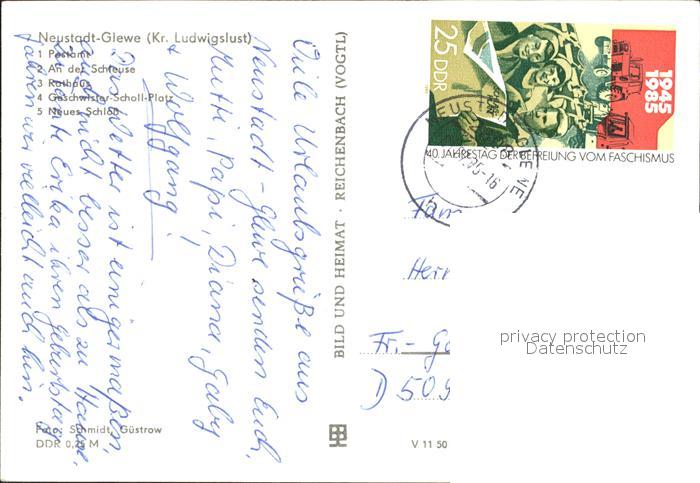 Neustadt-Glewe (Kr. Ludwigslust)
1 Postamt
2 An der Schleuse
3 Rathaus
4 Geschwister-Scholl-Platz
5 Neues Schloß
Viele Urlaubsgrüße aus
Neustadt-Glewe senden Euch,
Mutti, Papi, Diana, Gaby
+ Wolfgang!
Das Wetter ist einigermaßen,
nicht besser als zu Hause.
Erika ihren Geburtstag
fahren wir vielleicht auch hin.
Foto: Schmidt, Güstrow
DDR 0,25 M
BILD UND HEIMAT · REICHENBACH (VOGTL)
V 11 50
25 DDR
1945
1985
40. JAHRESTAG DER BEFREIUNG VOM FASCHISMUS
Fam
Herr
Fr.-
D 509
privacy protection
Datenschutz